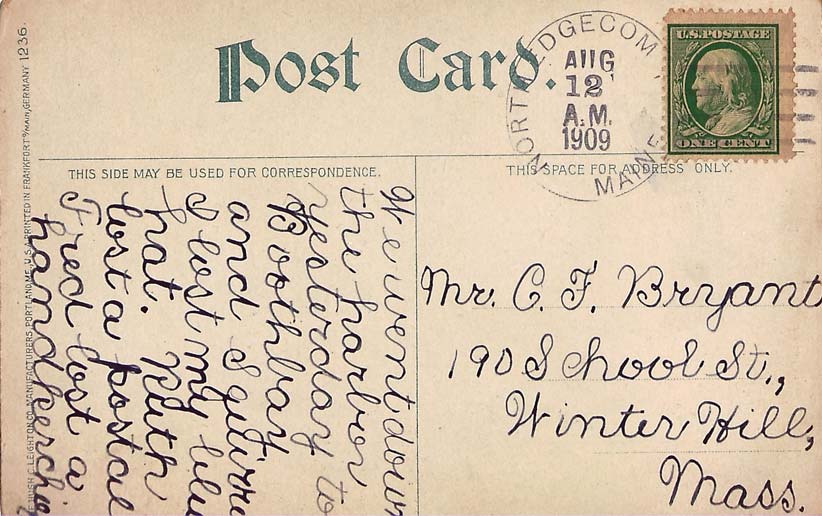 Post Card.
NORTH EDGECOMB
MAINE
AUG
12
A.M.
1909
U.S. POSTAGE
ONE CENT
THIS SIDE MAY BE USED FOR CORRESPONDENCE.
THIS SPACE FOR ADDRESS ONLY.
We went down
the harbor
yesterday to
Boothbay
and Squirre
I lost my blu
hat. Ruth
lost a postal
Fred lost a
handkerchie
Mr. C. F. Bryant
190 School St.,
Winter Hill,
Mass.
HUGH C. LEIGHTON CO., MANUFACTURERS, PORTLAND, ME., U.S.A. PRINTED IN FRANKFORT o/MAIN, GERMANY 1236.